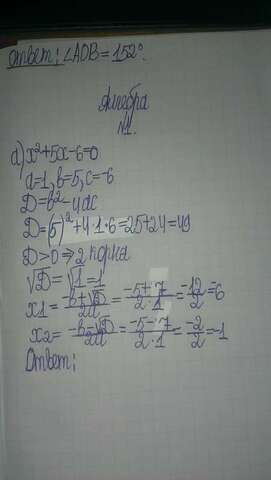 Ответ: ∠AOB = 152°.
Алгебра
№1.
а) x²+5x-6=0
a=1, b=5, c=-6
D=b²-4ac
D=(5)²+4·1·6=25+24=49
D>0 ⇒ 2 корня
√D=√1=1
x1=(-b+√D)/2a=(-5+7)/(2·1)=-12/2=6
x2=(-b-√D)/2a=(-5-7)/(2·1)=-2/2=-1
Ответ: